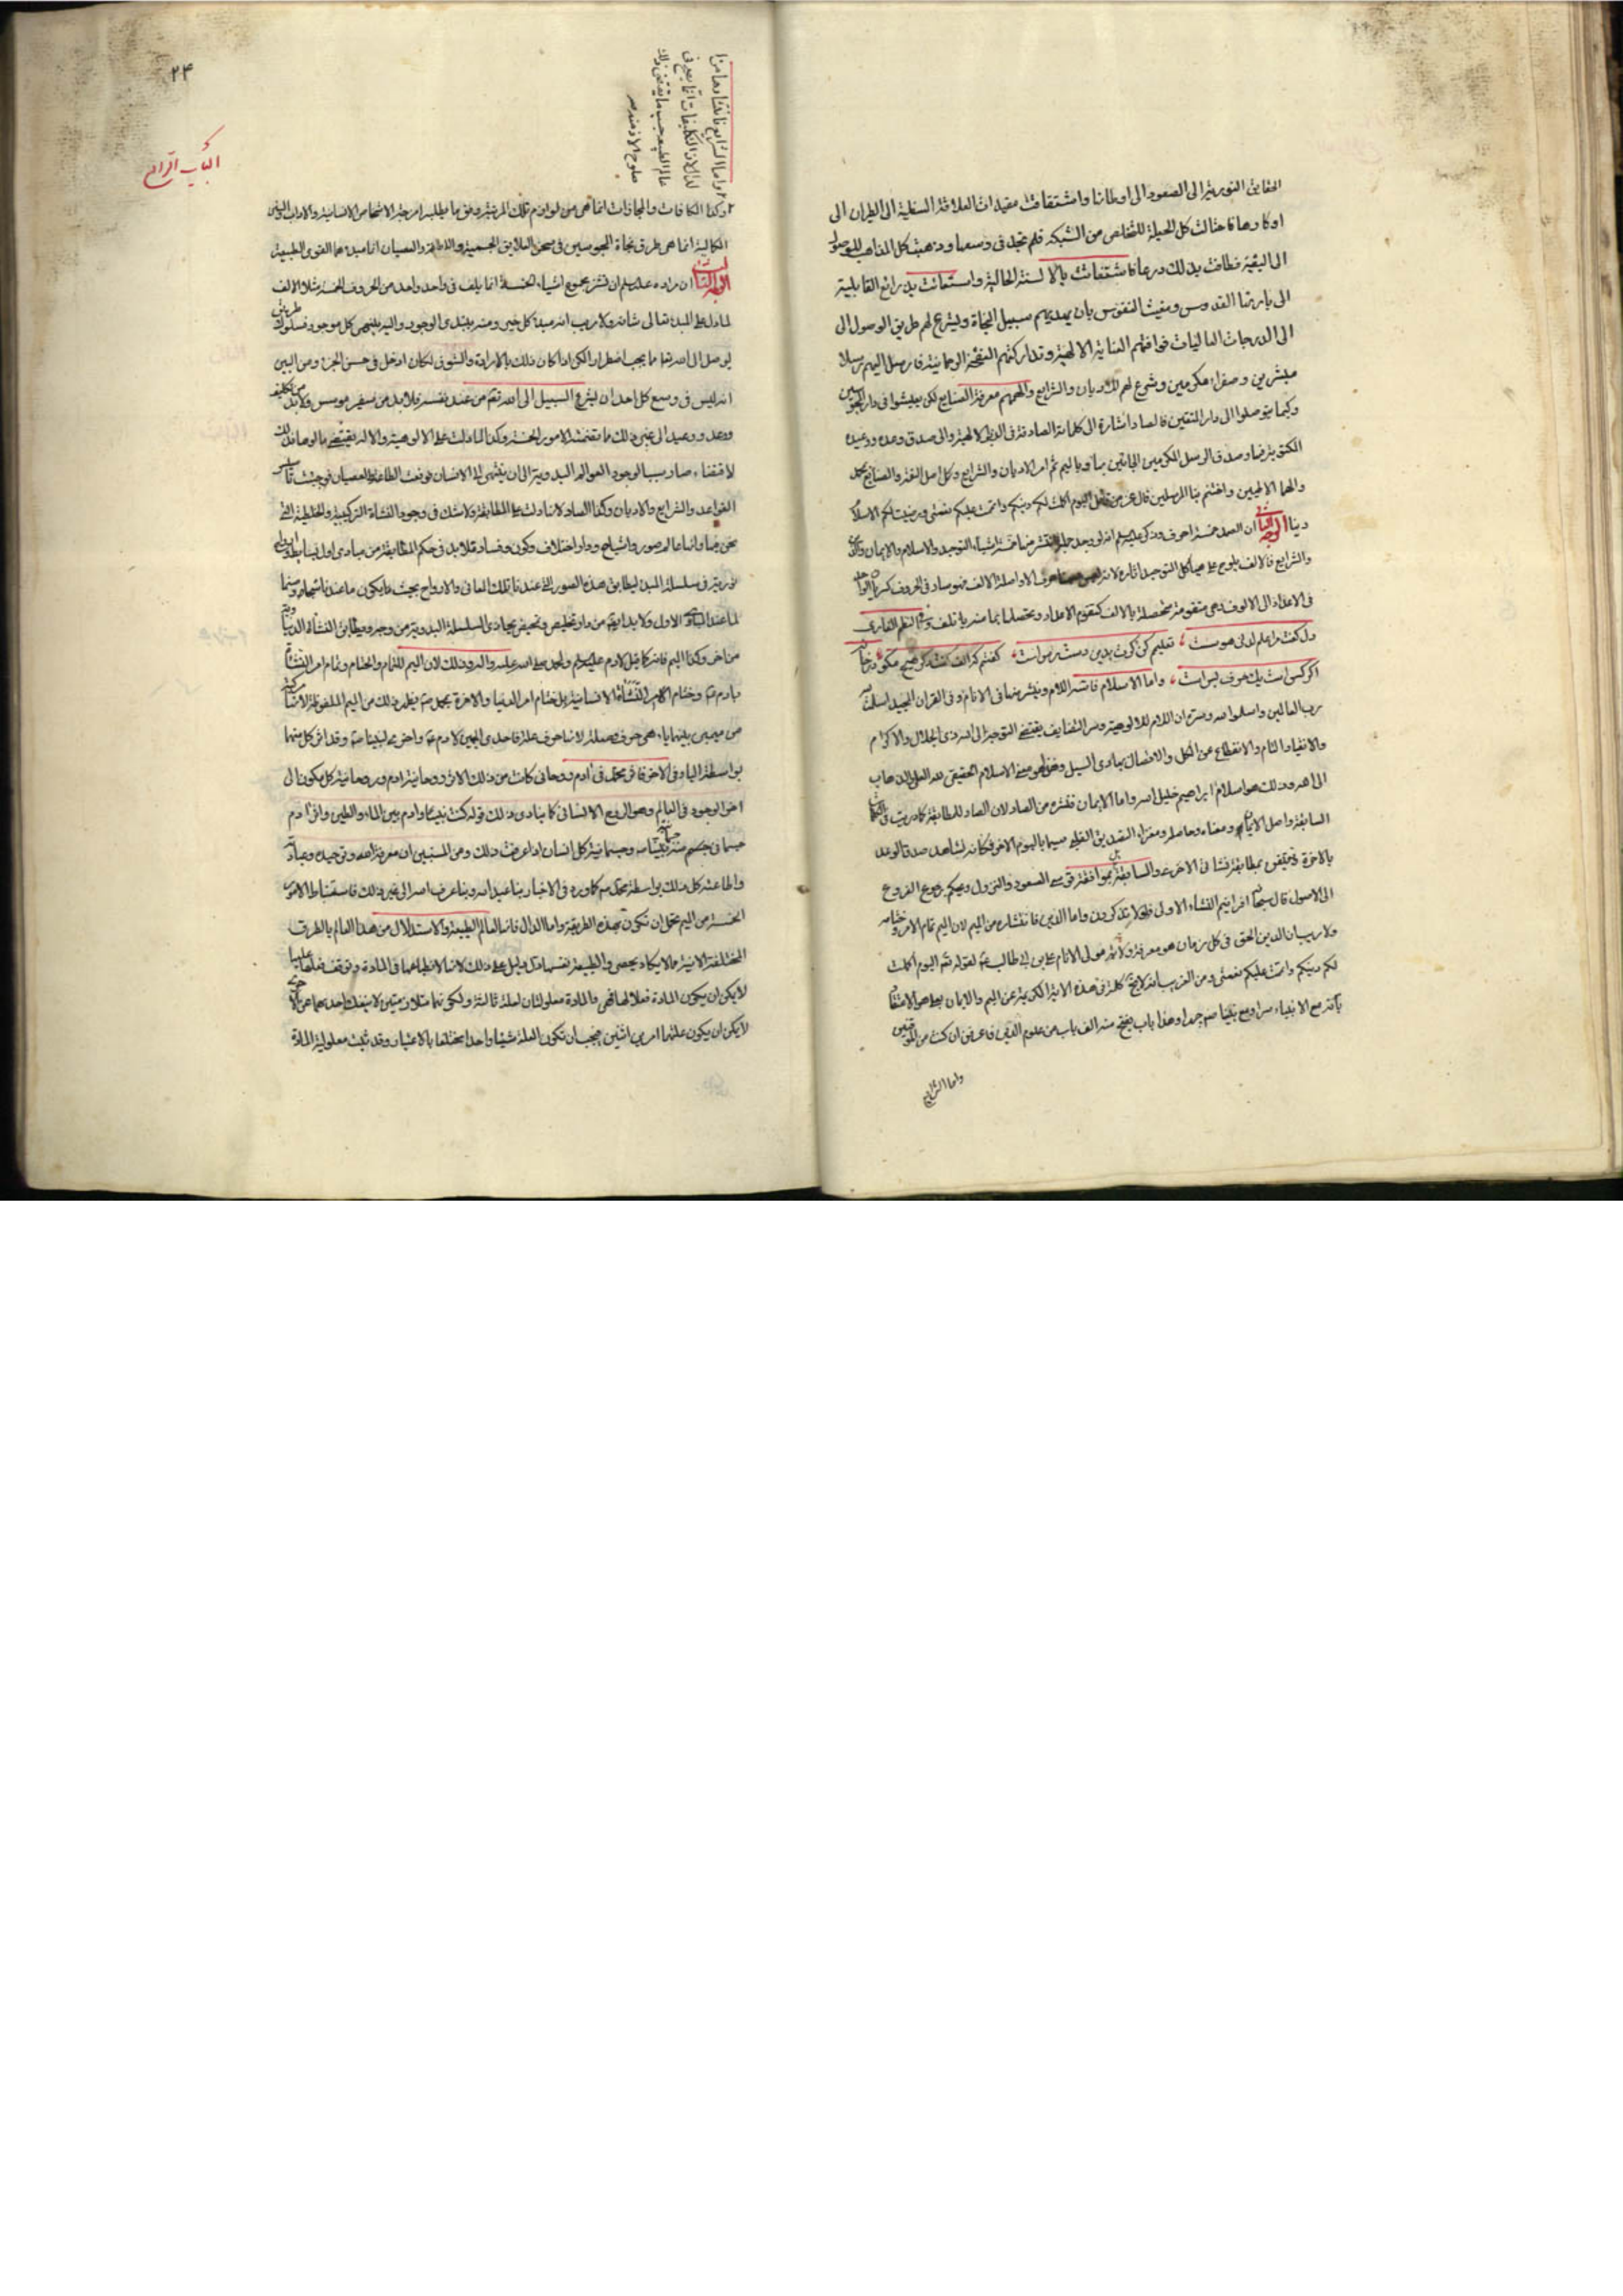 الحقايق النورية الى الصعود الى اوطانها واشتقاقت مقيدات العلاقة السفلية الى الطيران الى
اوكارها فاحتالت كل الحيلة للتخلص من الشبكة فلم تجد فى وسعها وذهبت كل المذاهب للوصول
الى البقية فطافت بذلك ذرعا فاستغاثت بالالسنة الحالية واستعانت بذرائع القابلية
الى بارئها القدوس ومغيث النفوس بان يهديهم سبيل النجاة ويشرع لهم طريق الوصول الى
الى الدرجات العاليات فوافتهم العناية الالهية وتداركتهم النفخة الرحمانية فارسل اليهم رسلا
مبشرين وسفراء مكرمين وشرع لهم الاديان والشرايع والهمهم معرفة الصنايع لكى يعيشوا فى دار
وكيما يتوصلوا الى دار المتقين فالصاد اشارة الى كلماته الصادقة فى الالهية والى صدق وعده ووعيده
وصدق الرسل المكرمين الجائين بها وباليم تم امر الاديان والشرايع
الالهيين واختتم بنا المرسلين قال عز من قائل اليوم اكملت لكم دينكم واتممت عليكم نعمتى ورضيت لكم الاسلام
دينا الوجه الثانى ان الصمد خمسة احرف وذكر عليه السلام انه لو وجد حملة لنشر منها خمسة اشياء التوحيد والاسلام والايمان والدين
والشرايع فالالف يلوح على هياكل التوحيد اثاره
فى الاعداد الى الالوف وهى متقومة متحصلة بالالف كتقوم الاعداد وتحصلها بما منه ياتلف وفى النظم الفارسى
دل گفت مرا علم لدنى هوس است ، تعليم كن گرت بدين دسترس است ، گفتم كه الف گفت دگر هيچ مگو در خانه
اگر كس است يك حرف بس است ، واما الاسلام فانه اللام وينشر منها فى الانام وفى القران المجيد اسلمت
لرب العالمين واسلموا له وسره ان اللام للالوهية وسر التضايف يقتضى التوجه الى الله ذى الجلال والاكرام
والانقياد التام والانقطاع عن الكل والاتصال بهادى السبل وهو معنى الاسلام الحقيقى
الى الله وذلك هو اسلام ابراهيم خليل الله واما الايمان فنشره من الصاد لان الصاد للمطابقة كما دريت فى
السابقة واصل الايمان ومعناه وحاصله ومغزاه التصديق القلبى سيما باليوم الاخر فكانه لشاهد صدق الوعد
بالاخرة فيتيقن بمطابقة نشأتى الاخرة والسابقة بموافقة قوسى الصعود والنزول ويحكم برجوع الفروع
الى الاصول قال سبحانه افرايتم النشاة الاولى فلولا تذكرون واما الدين فانتشاره من الميم لان الميم تمام الامر وختامه
ولا ريب ان الدين الحق فى كل زمان هو معرفة ولاية مولى الانام على بن ابى طالب لقوله تعالى اليوم اكملت
لكم دينكم واتممت عليكم نعمتى ومن الغريب
بانه مع الانبياء سرا ومع نبينا صم جهرا وهذا باب يفتح منه الف باب من علوم الدين فاعرف ان كنت من الموقنين
واما الشرايع
٢٤
الكتاب الرابع
واما الشرايع فانتشارها من
الدال لان التكليفات انما يقع فى
عالم الطبيعه حسب ما يقتضى ذلك
صلوح الازمنه
وكذا المكافات والمجازات انما هى من لوازم تلك المرتبة وفق ما يطلبه امزجة الاشخاص الانسانية والاداب
الكمالية انما هى طرق نجاة المحبوسين فى سجن العلايق الجسمية والطاعة والعصيان انما مبدءهما القوى الطبيعية
الوجه الثالث ان مراده عليه السلم ان نشر مجموع اشياء الخمسة انما ياتلف فى واحد واحد من الحروف الخمسة مثلا الالف
لما دل على المبدء تعالى شانه ولا ريب انه مبدء كل خير ومنه يبتدى الوجود واليه ينتهى كل موجود فسلوك طريق
يوصل الى الله تعالى مما يجب اضطرار لكن اذا كان ذلك بالارادة والشوق لكان ادخل فى حسن الجزاء ومن البين
انه ليس فى وسع كل احد ان يشرع السبيل الى الله تعالى من عند نفسه فلابد من سفير موسس ولابد من تكليف
ووعد ووعيد الى غير ذلك مما تقتضيه الامور الخمسة وكذا اللام دلت على الالوهية والاله يقتضى مالوها فذلك
الاقتضاء صار سببا لوجود العوالم البدوية الى ان ينتهى الى الانسان فوقعت الطاعة والعصيان فوجبت تاسيس
القواعد والشرايع والاديان وكذا الصاد لانها دلت على المطابقة ولاشك فى وجود النشاة التركيبية والخلطية التى
نحن فيها وانها عالم صور واشباح ودار اختلاف وكون وفساد فلابد فى حكم المطابقة من مبادى اول
نورية فى سلسلة البدء ليطابق هذه الصور التى عندنا تلك المعانى والارواح بحيث ما يكون ما عندنا
لما عند المبادى الاول ولابد ايضا من دار تخليص وتمحيص يحاذى السلسلة البدوية من وجه ويطابق النشاة الدنيا
من اخر وكذا الميم فانه كما قيل لادم عليه السلم ولمحمد صلى الله عليه واله وذلك لان الميم للتمام والختام وتمام امر النشاة
بادم ع وختام الامر النشاة الانسانية بل ختام امر الدنيا والاخرة بمحمد صم فيظهر ذلك من الميم الملفوظة لانها مركبة
من ميمين بينهما ياء هى حرف صلة لانها حرف علة فاحدى الميمين لادم ع واخرى لنبينا صم وقد اثر كل منهما
بواسطة الياء فى الاخر فاثر محمد فى ادم روحانى كانت من ذلك الاثر روحانية ادم وروحانية كل مكون الى
اخر الوجود فى العالم وهو النوع الانسانى كما ينادى بذلك قوله كنت نبيا وادم بين الماء والطين واثر ادم
جسمانى جسم منه نبينا صم وجسمانية كل انسان اذا عرفت ذلك ومن المستبين ان معرفة الله وتوحيده وعبادته
واطاعته كل ذلك بواسطة محمد صم كما ورد فى الاخبار بنا عبد الله وبنا عرف الله الى غير ذلك فاستنباط الامور
الخمسة من الميم يمكن ان تكون بهذه الطريقة واما الدال فانه العالم الطبيعة والاستدلال من هذا العالم بالطرق
المختلفة الانية مما لا يكاد يحصى والطبيعة نفسها ادل دليل على ذلك لانها لانطباعها فى المادة وتوقف فعلها عليها
لايمكن ان يكون المادة فعلا لها فهى والمادة معلولتان لعلة ثالثة ولكونهما متلازمتين لا ينفك احدهما عن الاخرى
لايمكن ان يكون علتهما امرين اثنين فيجب ان تكون العلة شيئا واحدا مختلفا بالاعتبار وقد ثبت معلولية المادة